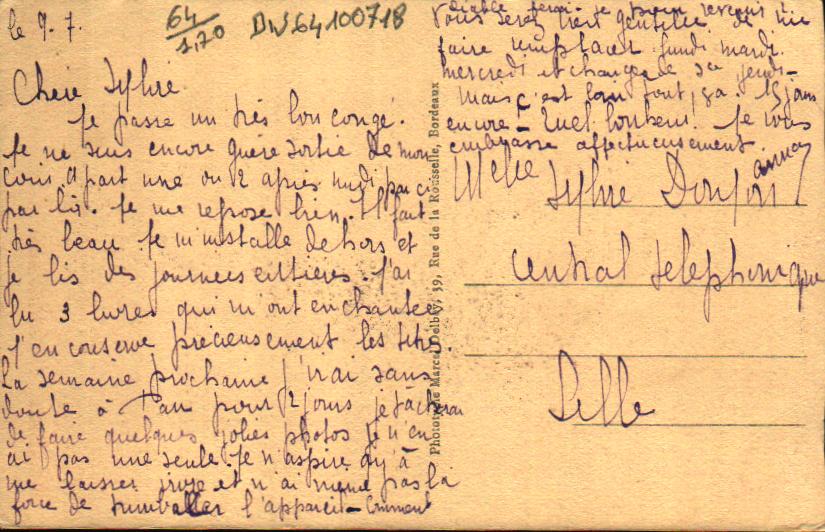 le 9.7.
64
1,20
DIV64100718
Chère Sylvie
Je passe un très bon congé.
Je ne suis encore guère sortie de mon
coin à part une ou 2 après midi par ci
par là. Je me repose bien. Il fait
très beau je m'installe dehors et
je lis des journées entières. J'ai
lu 3 livres qui m'ont enchantée
j'en conserve précieusement les titres.
La semaine prochaine j'irai sans
doute à Pau pour 2 jours je tâcherai
de faire quelques jolies photos je n'en
ai pas une seule. Je n'aspire qu'à
me laisser vivre et n'ai même pas la
force de trimballer l'appareil - Comment
diable ferai-je pour revenir !
Vous serez bien gentille de me
faire remplacer lundi mardi
mercredi et changer de jeudi -
Mais c'est loin tout ça. 15 jours
encore - quel bonheur. Je vous
embrasse affectueusement.
Phototypie Marcel Delboy, 39, Rue de la Rousselle, Bordeaux
Melle Sylvie Donjon
annexe
Central Téléphonique
Lille